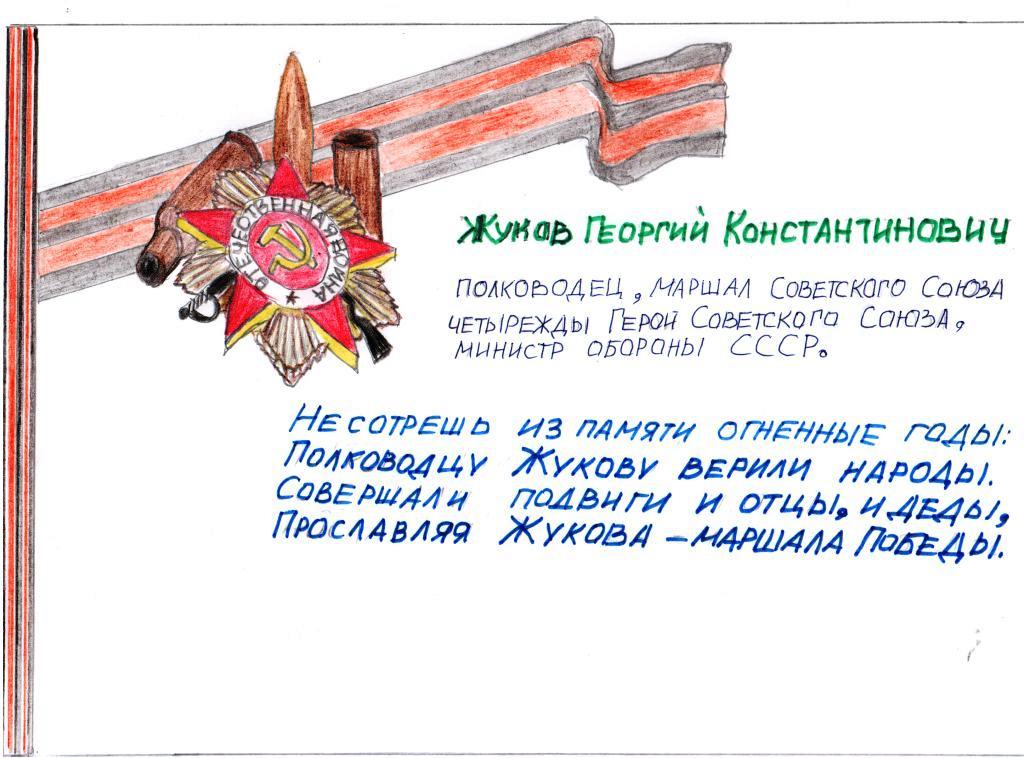 Отечественная война
Жуков Георгий Константинович
полководец, маршал Советского Союза
четырежды Герой Советского Союза,
министр обороны СССР.
Не сотрешь из памяти огненные годы:
Полководцу Жукову верили народы.
Совершали подвиги и отцы, и деды,
Прославляя Жукова – маршала Победы.